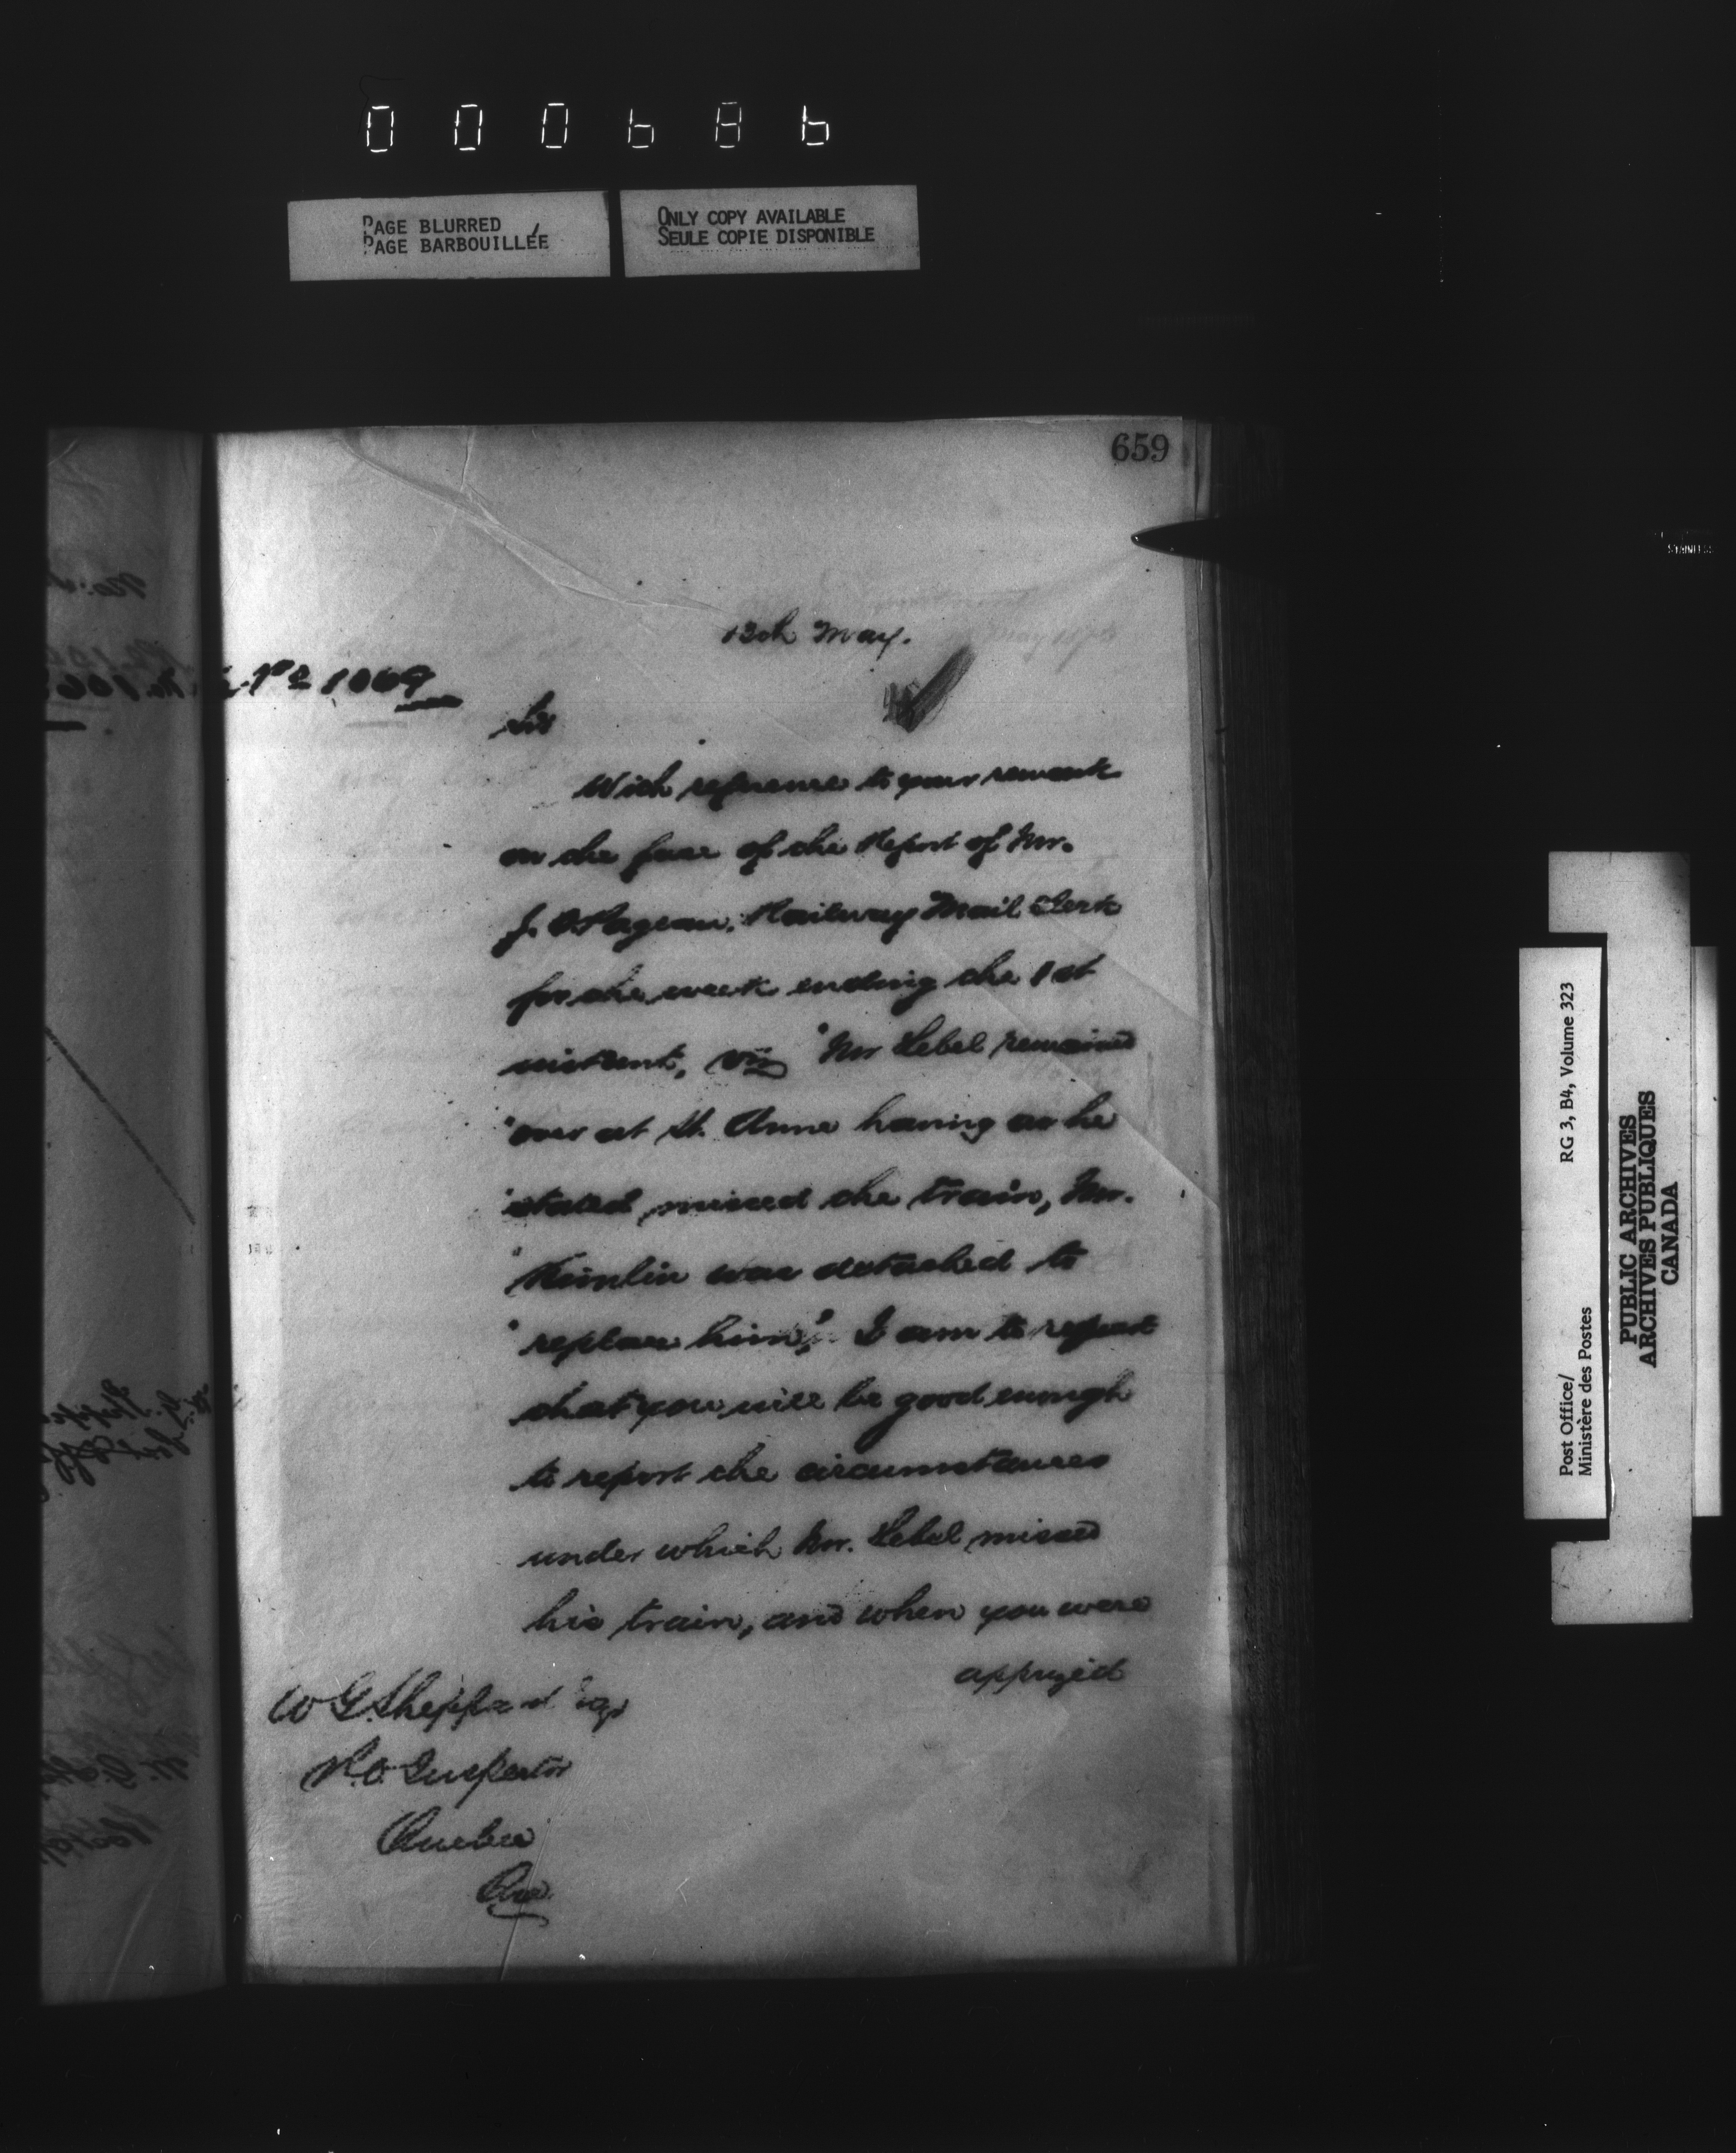 PAGE BLURRED
PAGE BARBOUILLÉE
ONLY COPY AVAILABLE
SEULE COPIE DISPONIBLE
659
13th May.
No 1069
Sir
With reference to your remark
on the face of the Report of Mr.
J. O. Pageau, Railway Mail Clerk
for the week ending the 1st
instant, viz "Mr Lebel remained
"over at St. Anne having as he
"stated missed the train, Mr.
" was detached to
"replace him". I am to request
that you will be good enough
to report the circumstances
under which Mr. Lebel missed
his train, and when you were
apprized
W G Sheppard Esqr
P.O. Inspector
Quebec
Que.
Post Office/
Ministère des Postes
RG 3, B4, Volume 323
PUBLIC ARCHIVES
ARCHIVES PUBLIQUES
CANADA